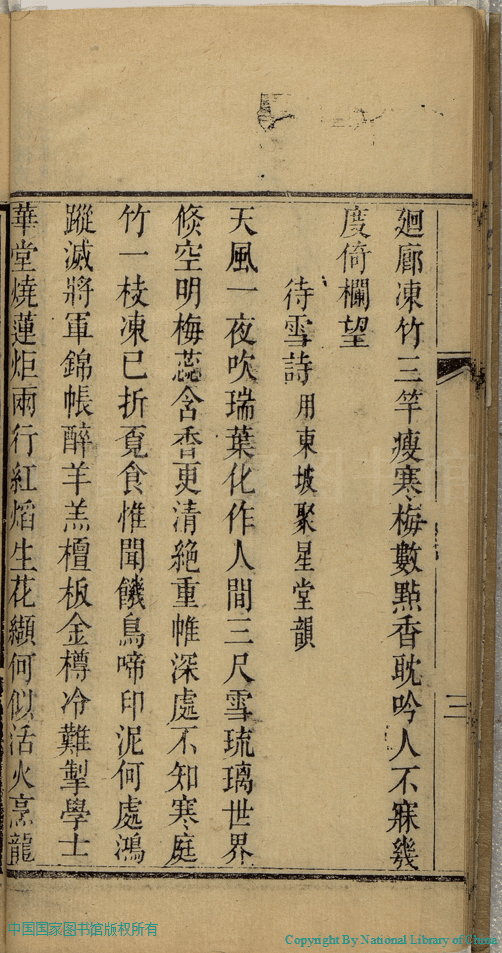 廻廊凍竹三竿瘦寒梅數點香耽吟人不寐幾
度倚欄望
待雪詩用東坡聚星堂韻
天風一夜吹瑞葉化作人間三尺雪琉璃世界
倐空明梅蕊含香更清絶重帷深處不知寒庭
竹一枝凍已折覔食惟聞饑鳥啼印泥何處鴻
蹤滅將軍錦帳醉羊羔檀板金樽冷難掣學士
華堂燒蓮炬兩行紅熖生花纈何似活火烹龍
三
中国国家图书馆版权所有
Copyright By National Library of China